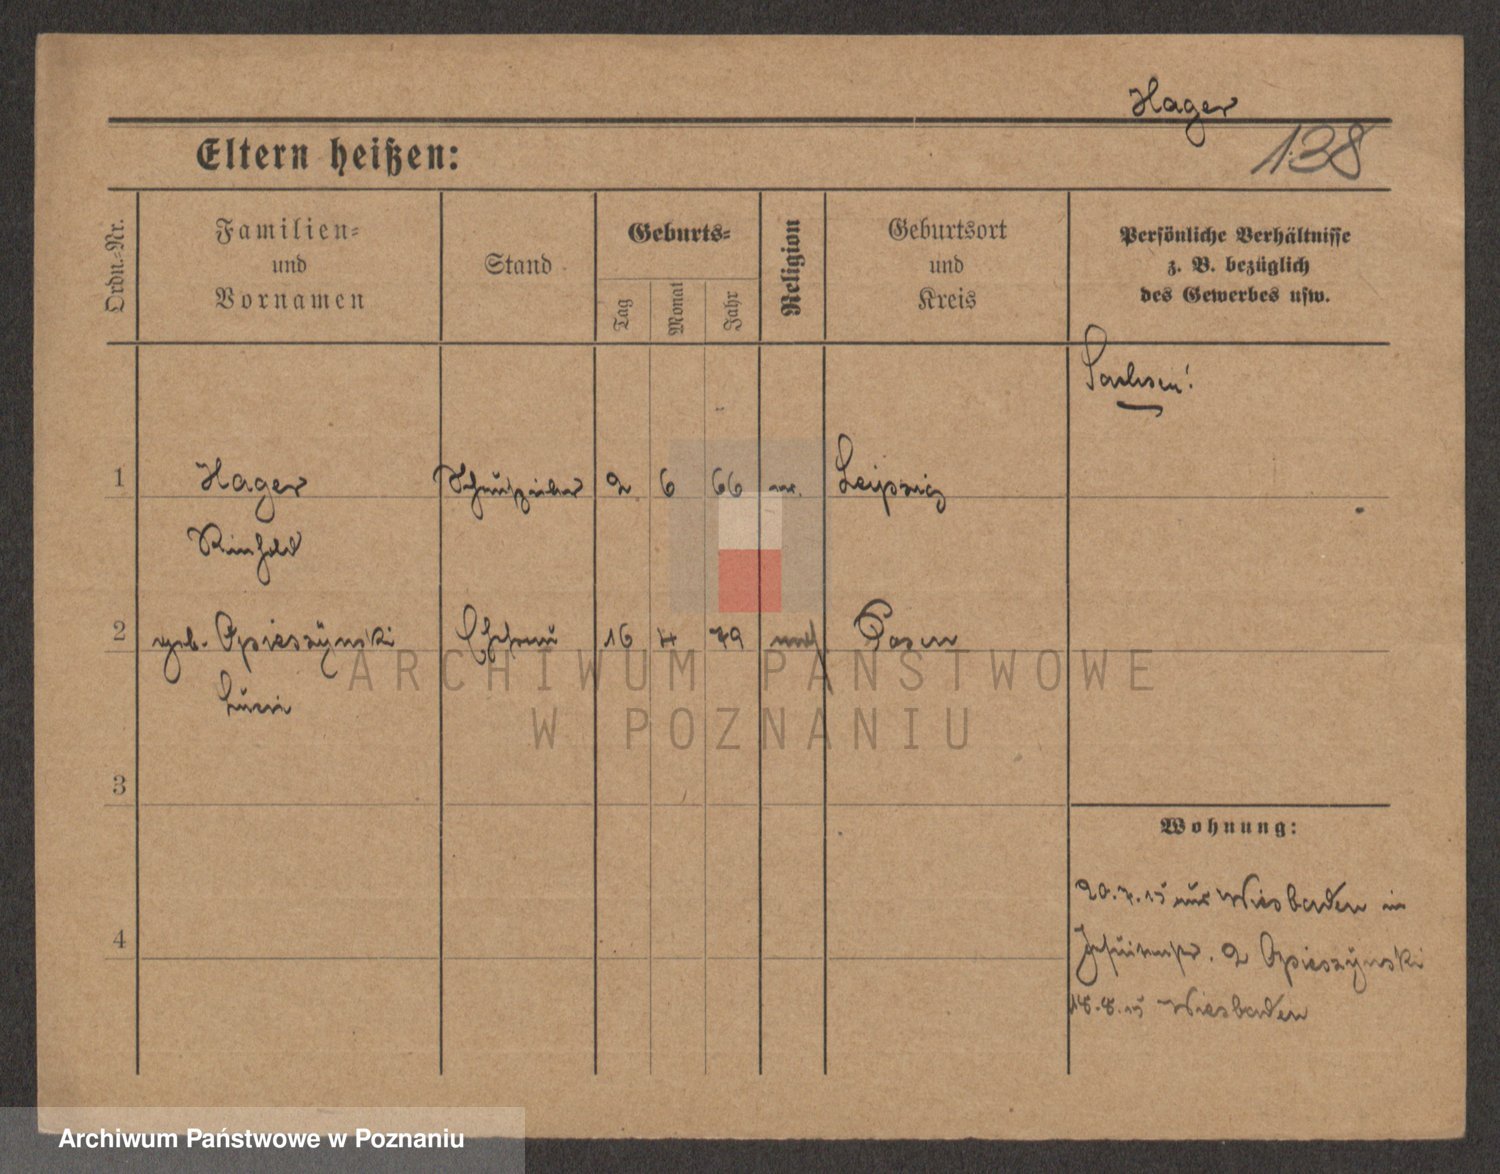 Hager
138
Eltern heißen:
Ordn.-Nr.
Familien-
und
Vornamen
Stand
Geburts-
Tag
Monat
Jahr
Religion
Geburtsort
und
Kreis
Persönliche Verhältnisse
z. B. bezüglich
des Gewerbes usw.
Sachsen!
1 Hager 2 6 66 Leipzig
Reinhold
2 geb. Opieszynski Ehefrau 16 4 79 Posen
Lucie
3
4
Wohnung:
20.7.15 aus Wiesbaden in
Jesuitenstr. 2 Opieszynski
18.8.15 Wiesbaden
ARCHIWUM PAŃSTWOWE
W POZNANIU
Archiwum Państwowe w Poznaniu